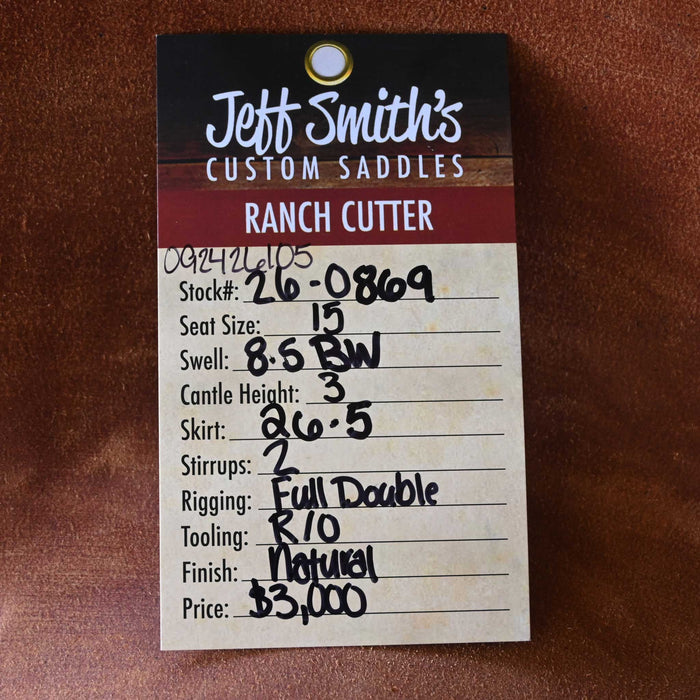 Jeff Smith's
CUSTOM SADDLES
RANCH CUTTER
092426105
Stock#: 26-0869
Seat Size: 15
Swell: 8.5 BW
Cantle Height: 3
Skirt: 26.5
Stirrups: 2
Rigging: Full Double
Tooling: R/O
Finish: Natural
Price: $3,000